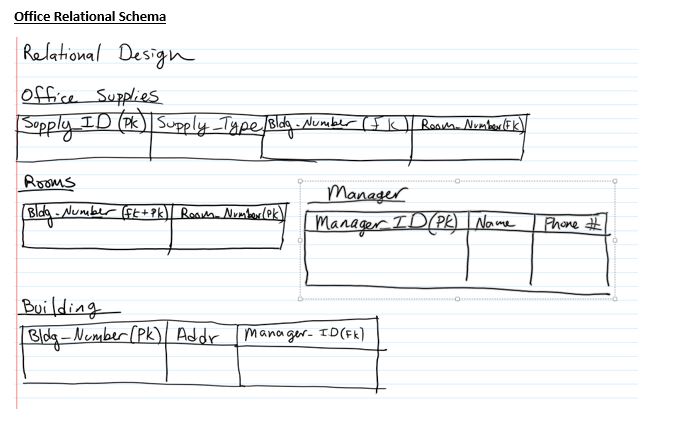 Office Relational Schema
Relational Design
Office Supplies
Supply_ID (PK) Supply_Type Bldg-Number (fk) Room-Number(FK)
Rooms
Bldg-Number (FK+PK) Room-Number(PK)
Manager
Manager_ID(PK) Name Phone #
Building
Bldg-Number(PK) Addr Manager-ID(FK)